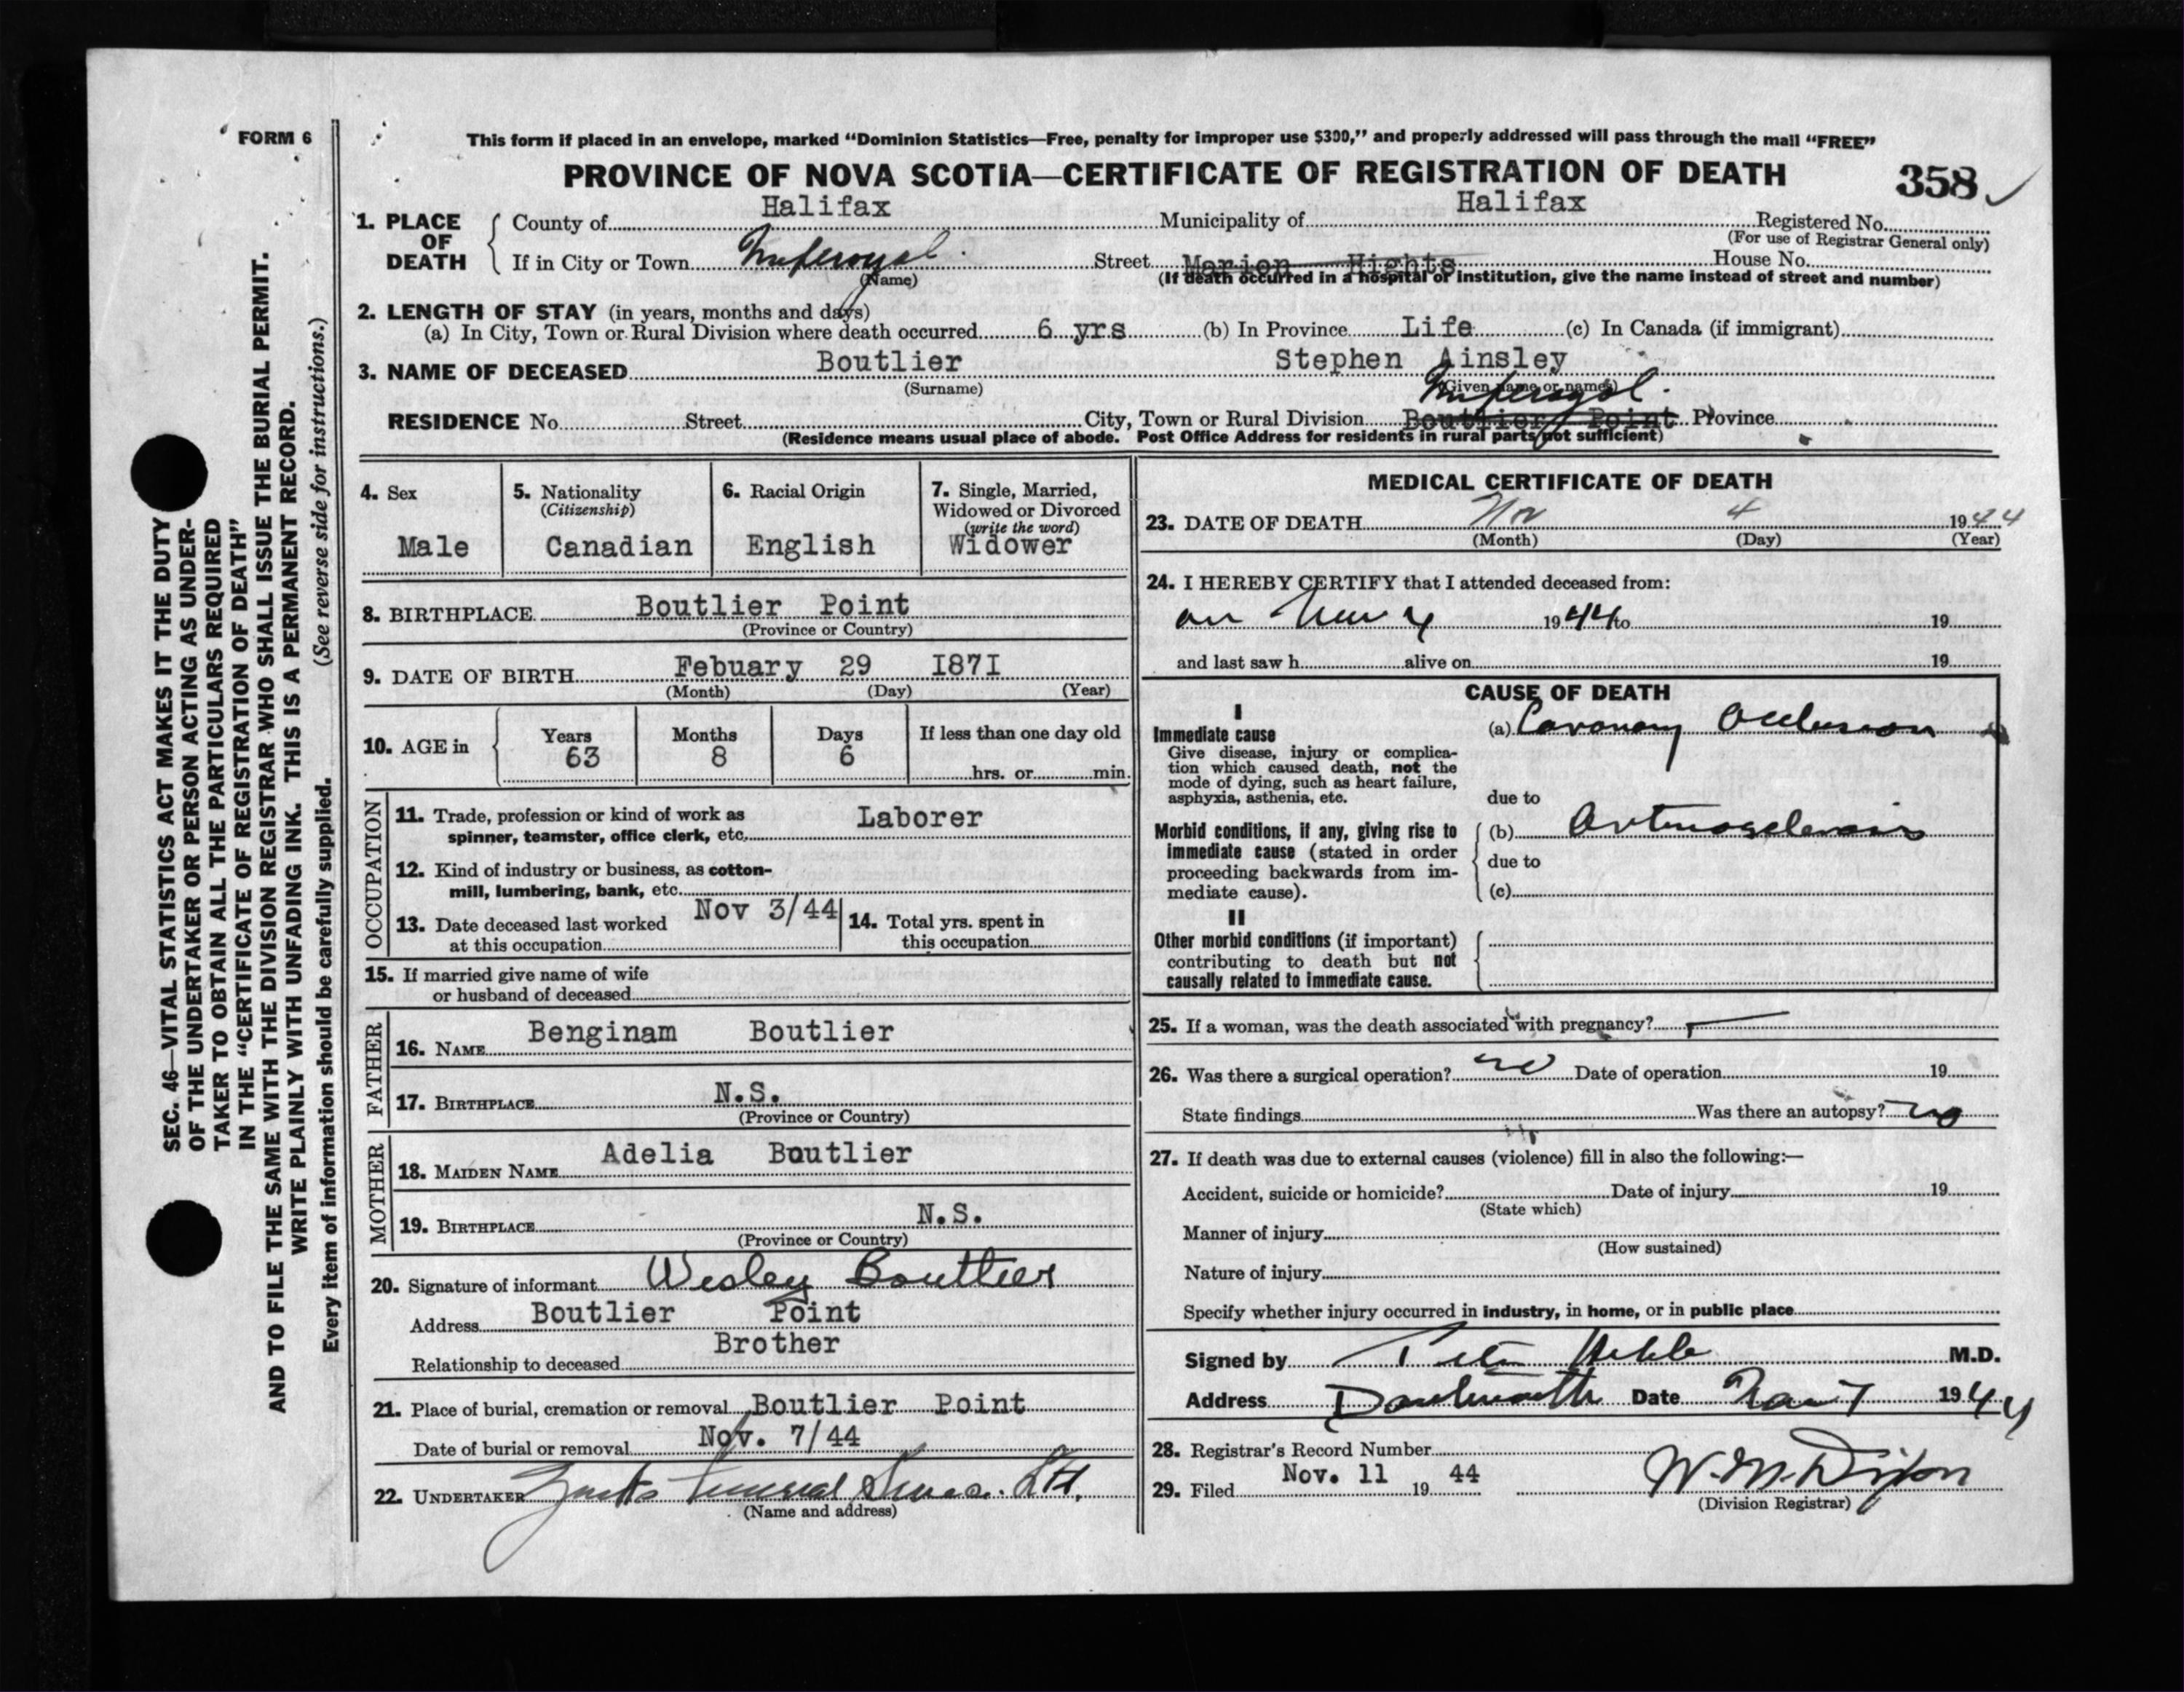 FORM 6
This form if placed in an envelope, marked “Dominion Statistics—Free, penalty for improper use $300,” and properly addressed will pass through the mail “FREE”
PROVINCE OF NOVA SCOTIA—CERTIFICATE OF REGISTRATION OF DEATH
358
1. PLACE OF DEATH
County of Halifax Municipality of Halifax Registered No.
(For use of Registrar General only)
If in City or Town Imperoyal Street Marion Hights House No.
(Name) (If death occurred in a hospital or institution, give the name instead of street and number)
2. LENGTH OF STAY (in years, months and days)
(a) In City, Town or Rural Division where death occurred 6 yrs (b) In Province Life (c) In Canada (if immigrant)
3. NAME OF DECEASED Boutlier Stephen Ainsley
(Surname) (Given name or names)
Imperoyal
RESIDENCE No. Street City, Town or Rural Division Boutlier Point Province
(Residence means usual place of abode. Post Office Address for residents in rural parts not sufficient)
4. Sex
Male
5. Nationality
(Citizenship)
Canadian
6. Racial Origin
English
7. Single, Married,
Widowed or Divorced
(write the word)
Widower
8. BIRTHPLACE Boutlier Point
(Province or Country)
9. DATE OF BIRTH Febuary 29 1871
(Month) (Day) (Year)
10. AGE in
Years Months Days If less than one day old
63 8 6
hrs. or min.
OCCUPATION
11. Trade, profession or kind of work as
spinner, teamster, office clerk, etc. Laborer
12. Kind of industry or business, as cotton-
mill, lumbering, bank, etc.
13. Date deceased last worked
at this occupation Nov 3/44
14. Total yrs. spent in
this occupation
15. If married give name of wife
or husband of deceased
FATHER
16. NAME Benginam Boutlier
17. BIRTHPLACE N.S.
(Province or Country)
MOTHER
18. MAIDEN NAME Adelia Boutlier
19. BIRTHPLACE N.S.
(Province or Country)
20. Signature of informant Wesley Boutlier
Address Boutlier Point
Relationship to deceased Brother
21. Place of burial, cremation or removal Boutlier Point
Date of burial or removal Nov. 7/44
22. UNDERTAKER Funeral Ltd.
(Name and address)
MEDICAL CERTIFICATE OF DEATH
23. DATE OF DEATH Nov 4 1944
(Month) (Day) (Year)
24. I HEREBY CERTIFY that I attended deceased from:
on Nov 4 1944 to 19
and last saw h alive on 19
CAUSE OF DEATH
I
Immediate cause
Give disease, injury or complica-
tion which caused death, not the
mode of dying, such as heart failure,
asphyxia, asthenia, etc.
(a) Coronary Occlusion
due to
Morbid conditions, if any, giving rise to
immediate cause (stated in order
proceeding backwards from im-
mediate cause).
(b) Arteriosclerosis
due to
(c)
II
Other morbid conditions (if important)
contributing to death but not
causally related to immediate cause.
25. If a woman, was the death associated with pregnancy?
26. Was there a surgical operation? no Date of operation 19
State findings Was there an autopsy? no
27. If death was due to external causes (violence) fill in also the following:—
Accident, suicide or homicide? Date of injury 19
(State which)
Manner of injury
(How sustained)
Nature of injury
Specify whether injury occurred in industry, in home, or in public place
Signed by M.D.
Address Dartmouth Date Nov 7 1944
28. Registrar's Record Number
29. Filed Nov. 11 19 44 W. M. Dixon
(Division Registrar)
SEC. 46—VITAL STATISTICS ACT MAKES IT THE DUTY
OF THE UNDERTAKER OR PERSON ACTING AS UNDER-
TAKER TO OBTAIN ALL THE PARTICULARS REQUIRED
IN THE “CERTIFICATE OF REGISTRATION OF DEATH”
AND TO FILE THE SAME WITH THE DIVISION REGISTRAR WHO SHALL ISSUE THE BURIAL PERMIT.
WRITE PLAINLY WITH UNFADING INK. THIS IS A PERMANENT RECORD.
(See reverse side for instructions.)
Every item of information should be carefully supplied.